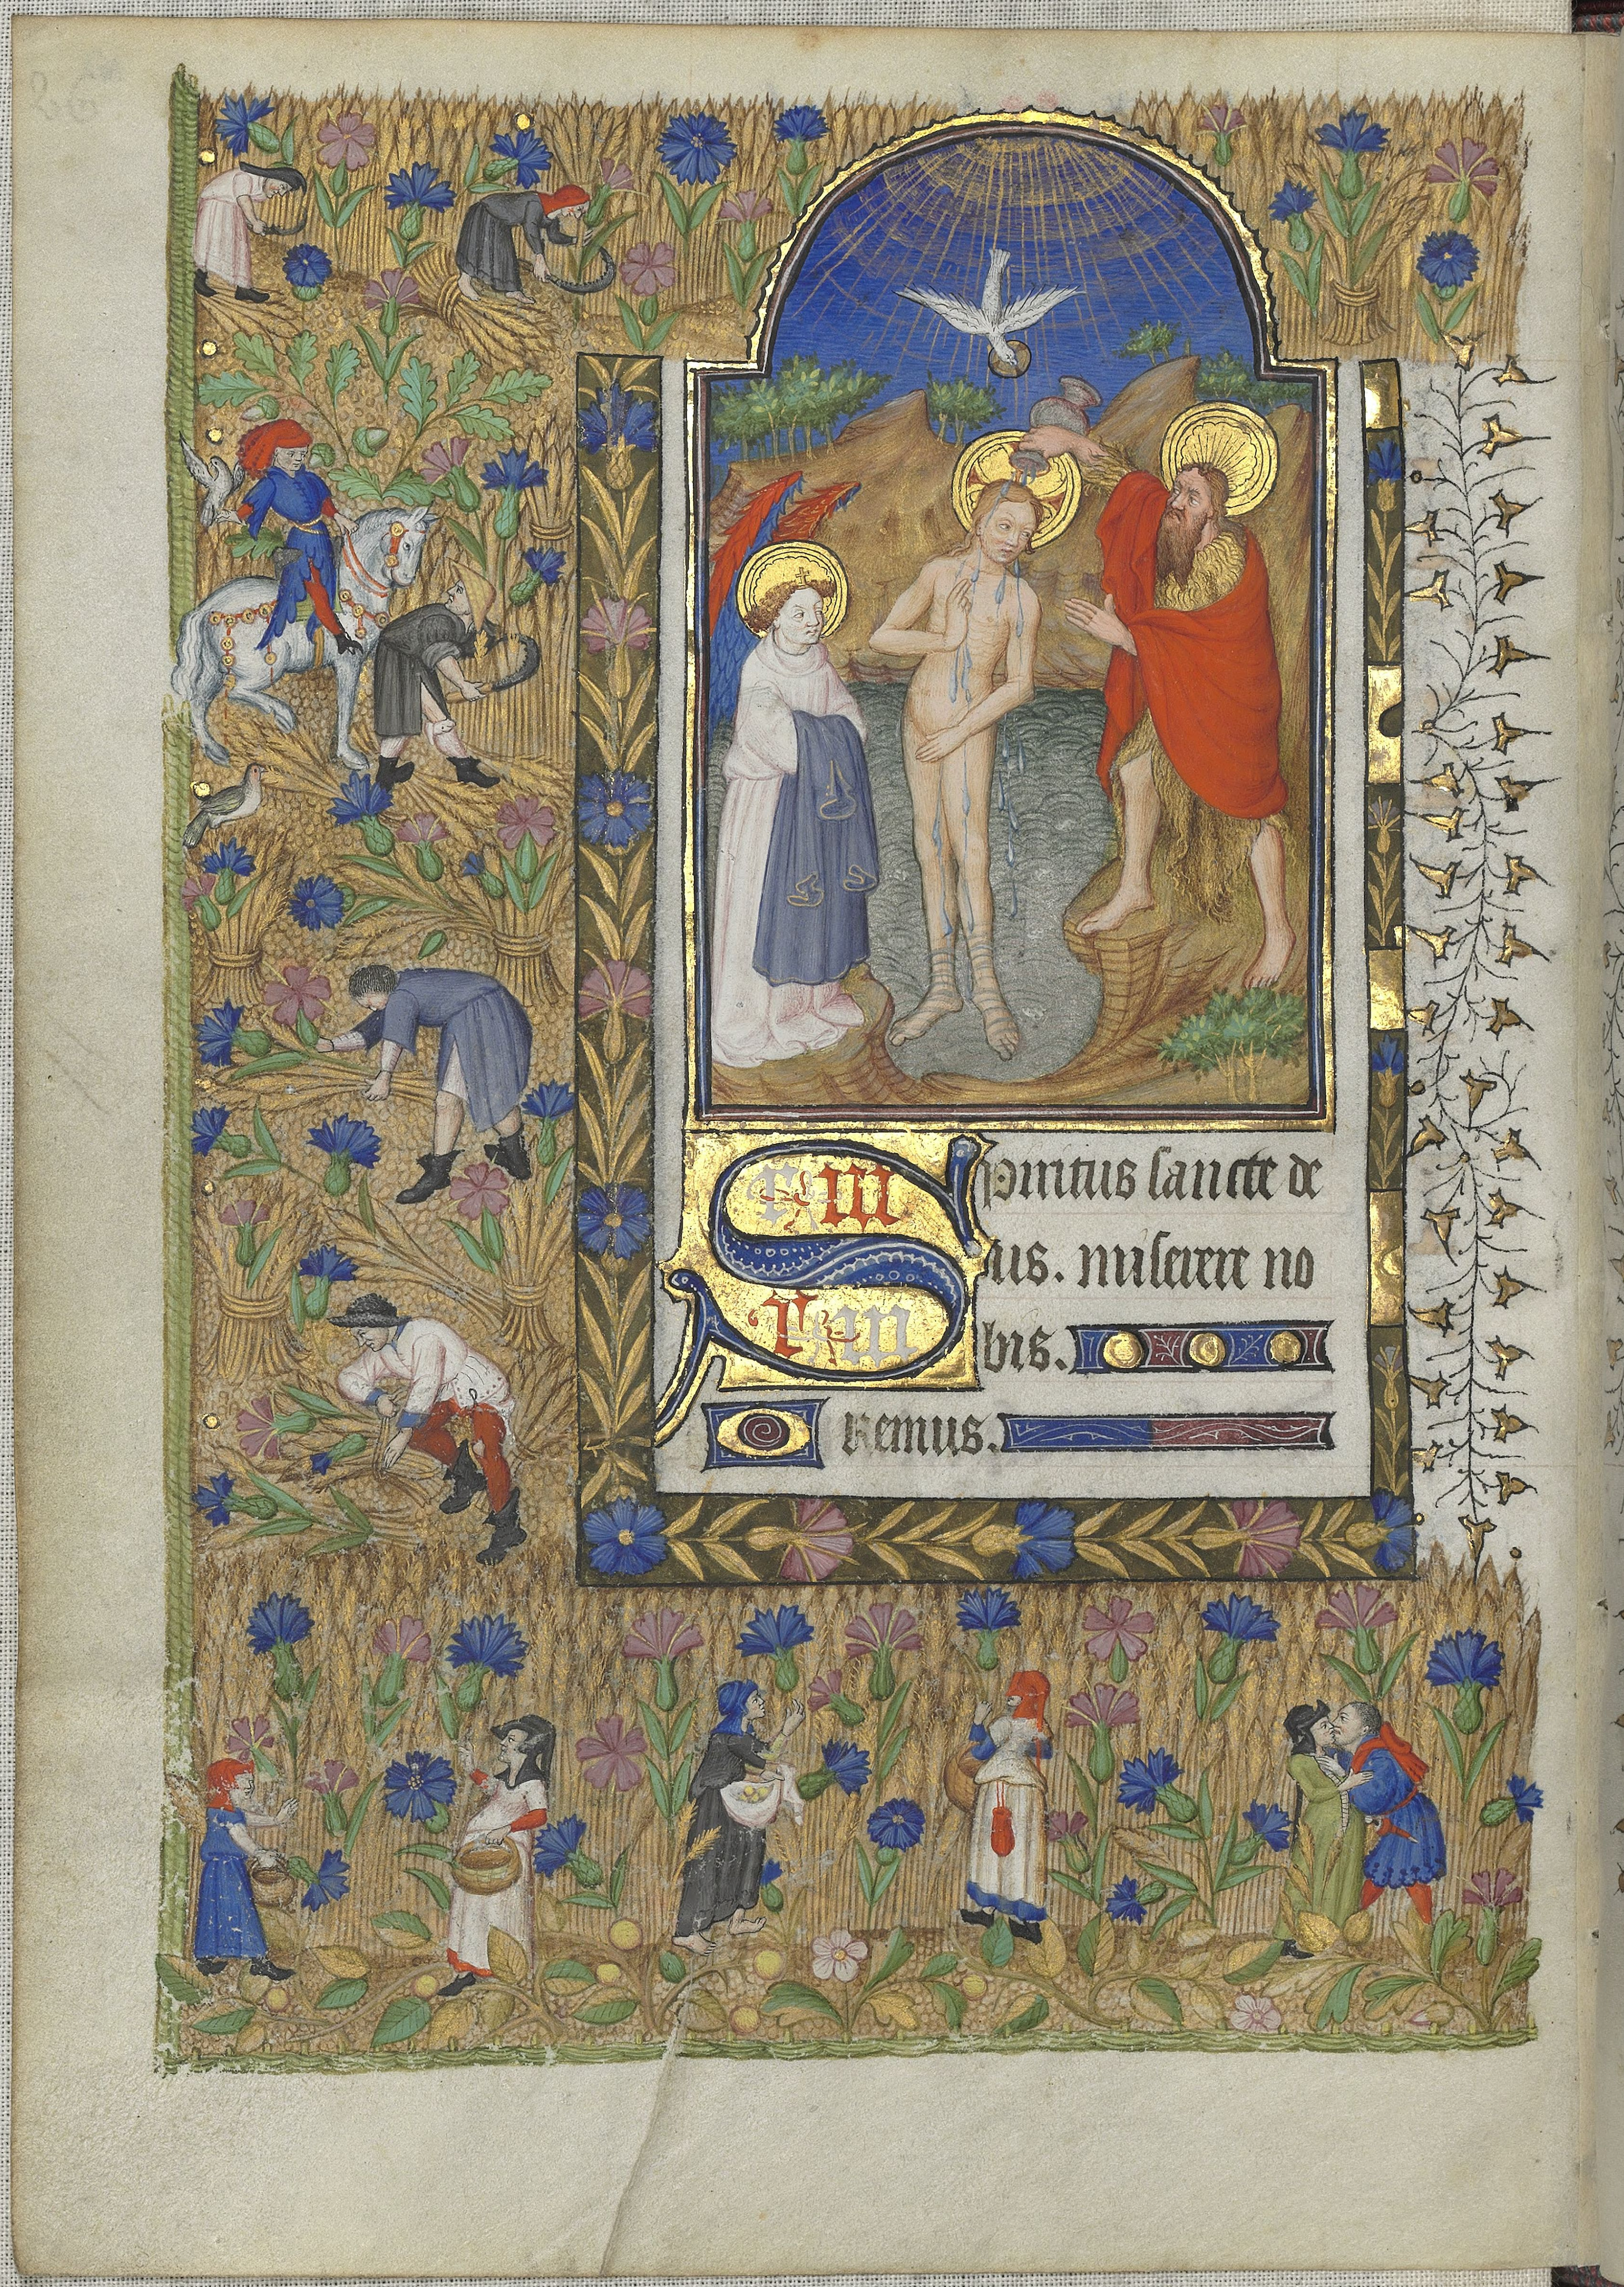 Spiritus sancte de
us. miserere no
bis.
Oremus.